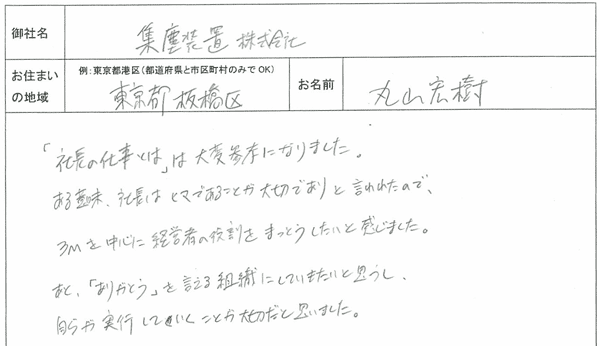 御社名 集塵装置 株式会社
お住まいの地域 例：東京都港区（都道府県と市区町村のみでOK） 東京都 板橋区 お名前 丸山宏樹
「社長の仕事とは」は大変参考になりました。
ある意味、社長はヒマであることが大切でありと言われたので、
3Mを中心に経営者の役割をまっとうしたいと感じました。
あと、「ありがとう」を言える組織にしていきたいと思うし、
自らが実行していくことが大切だと思いました。